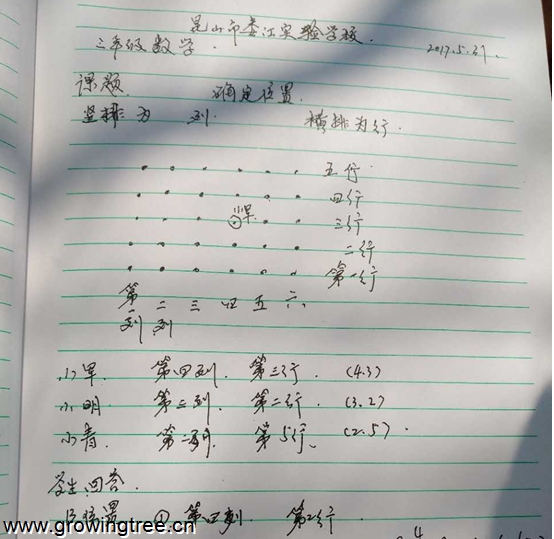 昆山市娄江实验学校.
三年级数学. 2017.5.31.
课题 确定位置.
竖排为 列 横排为行.
五行
四行
小军 三行
二行
第一行
第一列 二列 三 四 五 六.
小军 第四列. 第三行. (4.3)
小明 第三列. 第二行. (3.2)
小青. 第二列. 第5行. (2.5).
学生回答.
① 第四列. 第2行.
www.growingtree.cn